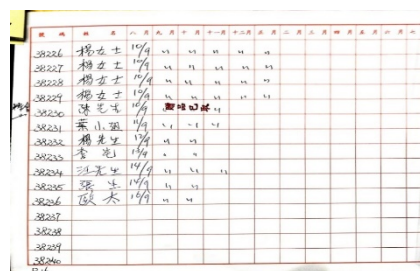 號碼 姓名 八月 九月 十月 十一月 十二月 正月 二月 三月 四月 五月 六月 七
38226 楊女士 10/9 〃 〃 〃 〃 〃
38227 楊女士 10/9 〃 〃 〃 〃 〃
38228 楊女士 10/9 〃 〃 〃 〃 〃
38229 楊女士 10/9 〃 〃 〃 〃 〃
38230 陳先生 10/9
38231 葉小姐 11/9 〃 〃 〃
38232 楊先生 13/9 〃 〃
38233 李 13/9 〃 〃
38234 汪先生 14/9 〃 〃 〃
38235 張生 14/9 〃 〃
38236 歐太 16/9 〃 〃
38237
38238
38239
38240